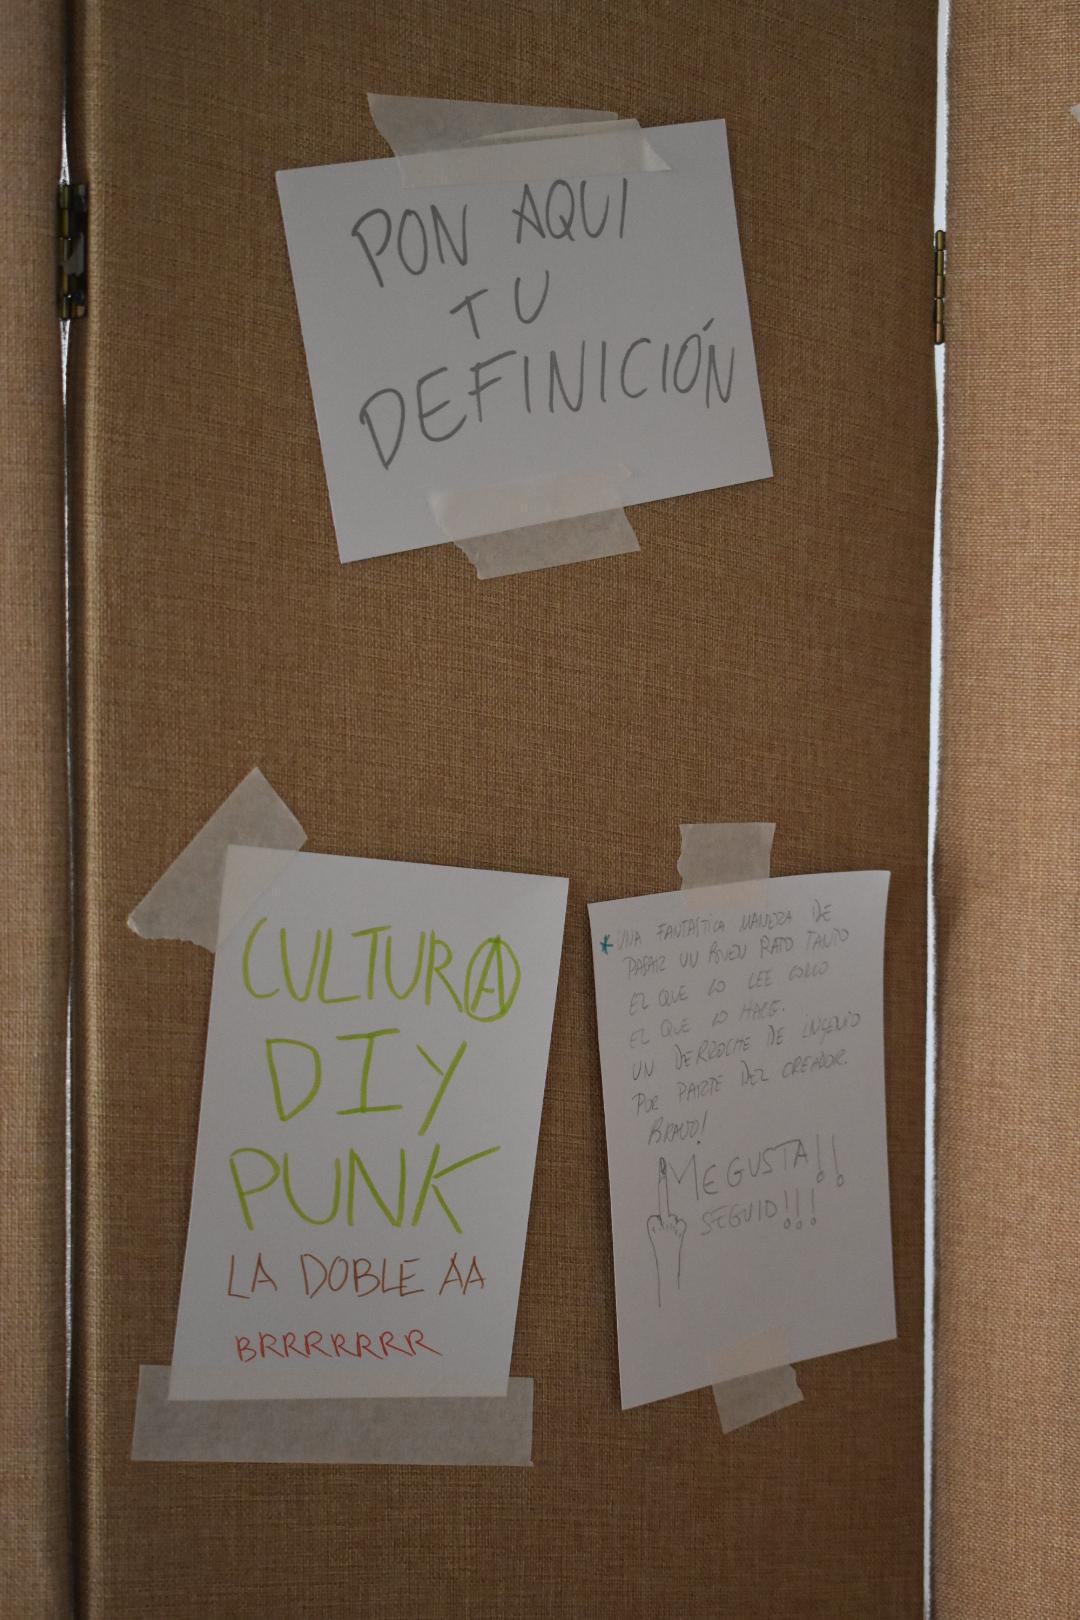 PON AQUI
TU
DEFINICIÓN
CULTURA
DIY
PUNK
LA DOBLE AA
BRRRRRRR
*UNA FANTÁSTICA MANERA DE
PASAR UN BUEN RATO TANTO
EL QUE LO LEE COMO
EL QUE LO HACE.
UN DERROCHE DE INGENIO
POR PARTE DEL CREADOR.
BRAVO!
ME GUSTA!!
SEGUID!!!